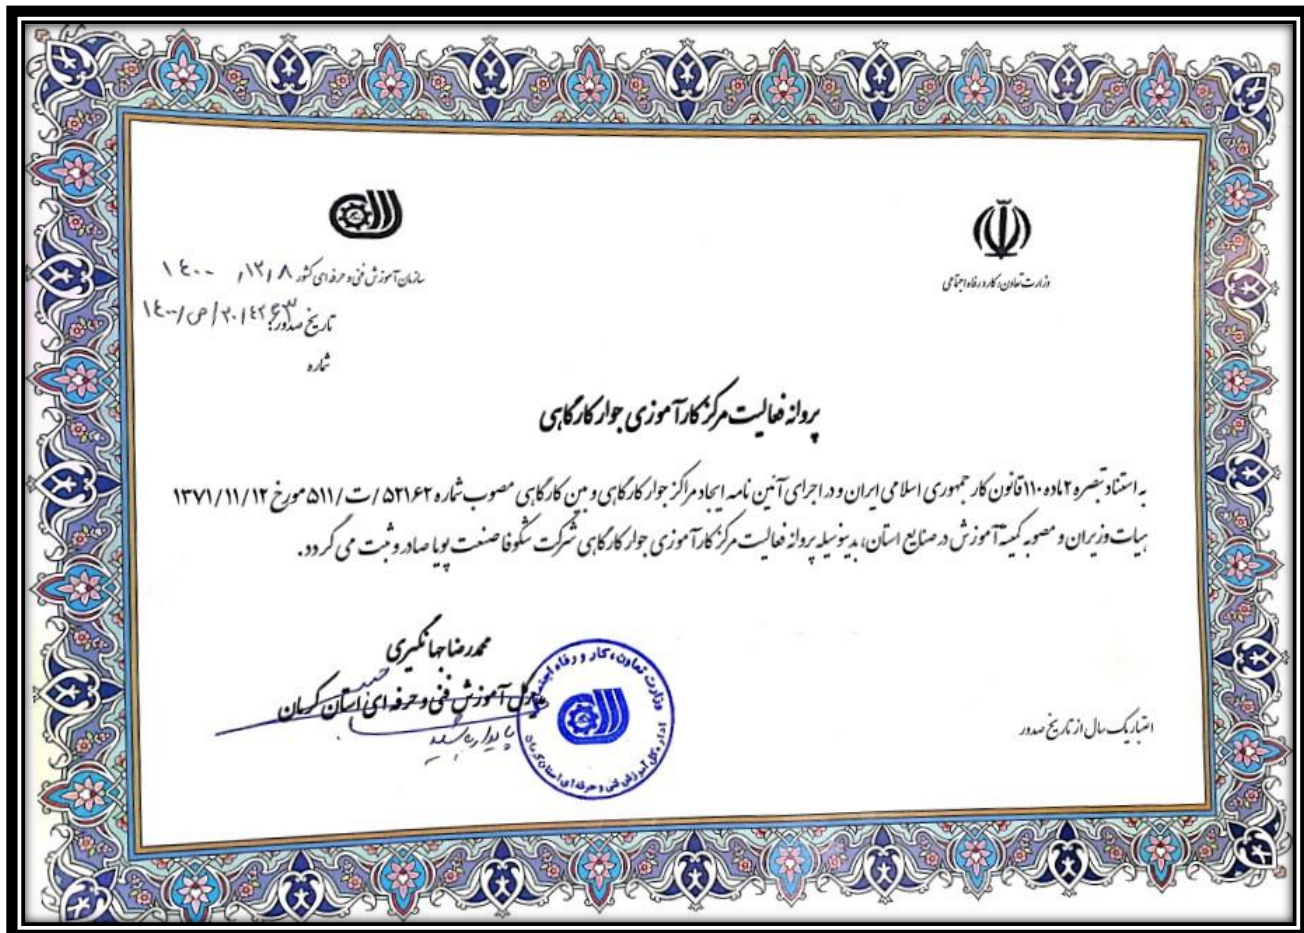 وزارت تعاون، کار و رفاه اجتماعی
سازمان آموزش فنی و حرفه ای کشور
۱۴۰۰/۱۲/۸
تاریخ صدور:
شماره
پروانه فعالیت مرکز کارآموزی جوار کارگاهی
به استناد تبصره ۲ ماده ۱۱۰ قانون کار جمهوری اسلامی ایران و در اجرای آئین نامه ایجاد مراکز جوار کارگاهی و بین کارگاهی مصوب شماره ۵۲۱۶۲/ت/۵۱۱ مورخ ۱۳۷۱/۱۱/۱۲
هیات وزیران و مصوبه کمیته آموزش در صنایع استان، بدینوسیله پروانه فعالیت مرکز کارآموزی جوار کارگاهی شرکت شکوفا صنعت پویا صادر و ثبت می گردد.
محمدرضا جهانگیری
مدیرکل آموزش فنی و حرفه ای استان کرمان
پایدار باشید
وزارت تعاون، کار و رفاه اجتماعی
اداره کل آموزش فنی و حرفه ای استان کرمان
اعتبار یک سال از تاریخ صدور